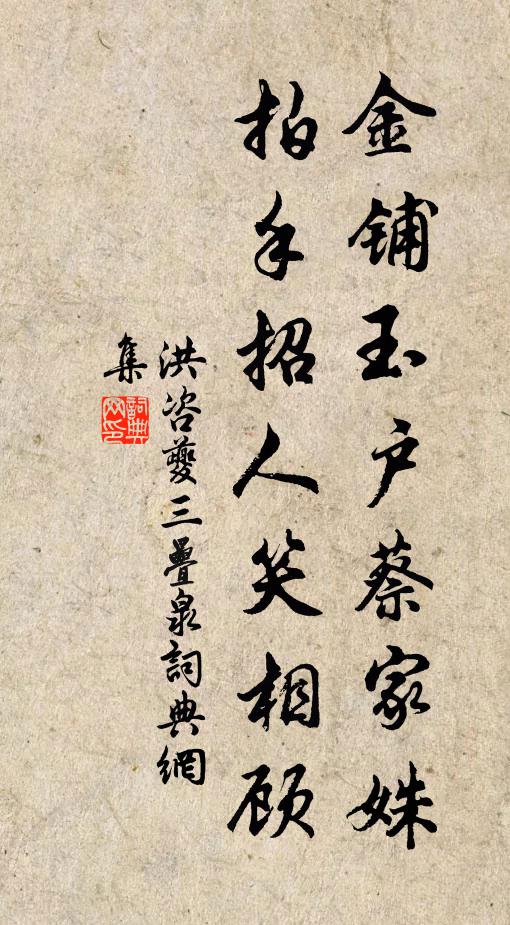 金铺玉户蔡家姝
拍手招人笑相顾
洪咨夔三疊泉詞典網
集
詞典网印